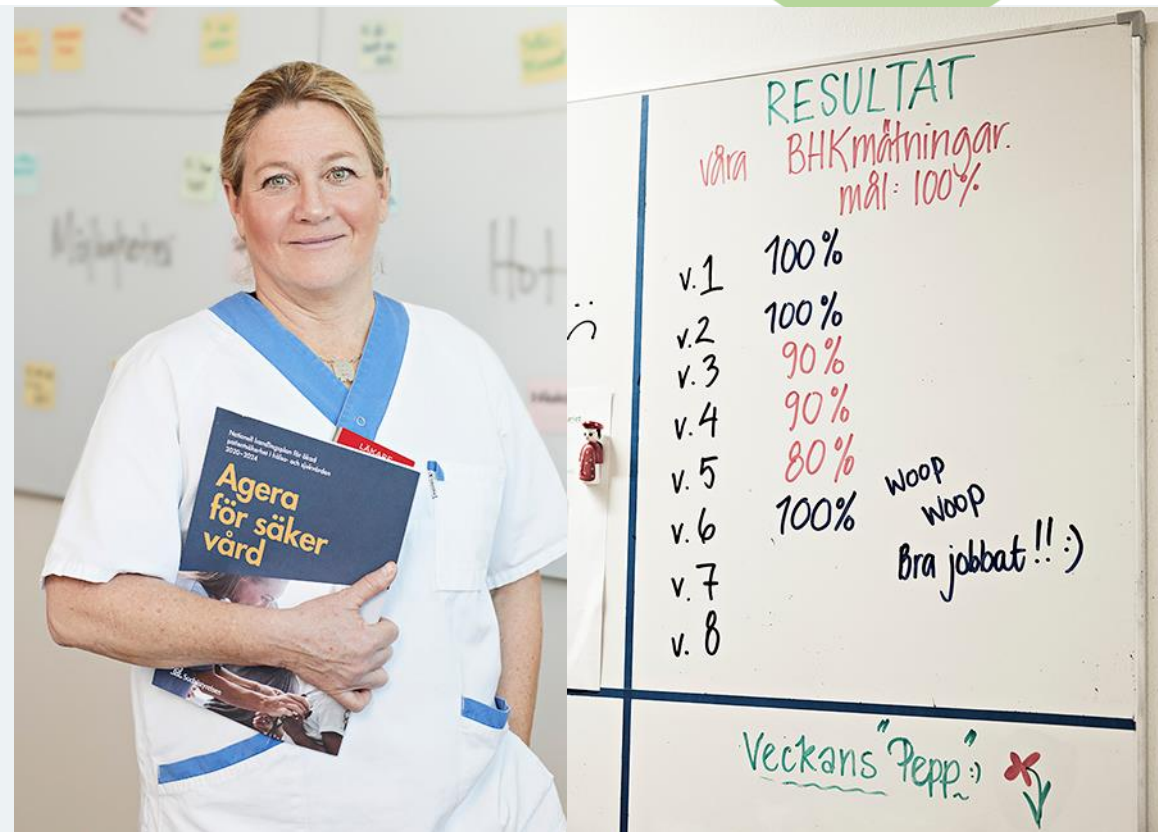 Möjligheter
Hot
LÄKARE
Nationell handlingsplan för ökad
patientsäkerhet i hälso- och sjukvården
2020–2024
Agera
för säker
vård
Socialstyrelsen
RESULTAT
våra BHKmätningar.
mål: 100%
v.1 100%
v.2 100%
v.3 90%
v.4 90%
v.5 80%
v.6 100% WOOP
WOOP
Bra jobbat!! :)
v.7
v.8
Veckans "Pepp" :)